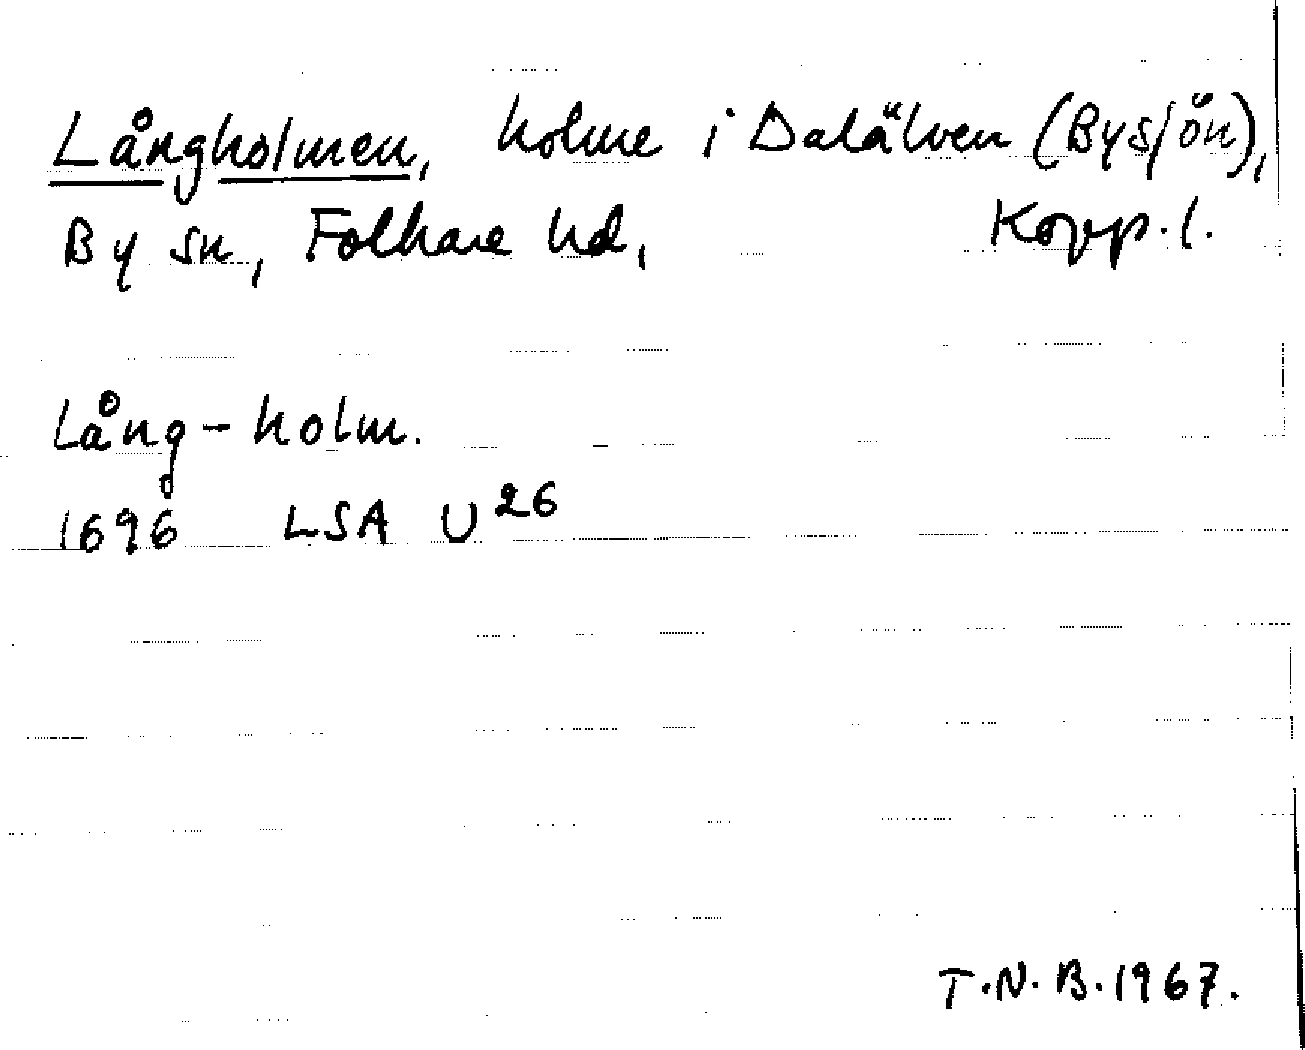 Långholmen, holme i Dalälven (Bysjön),
By sn, Folkare hd, Kopp. l.
Lång-holm.
1696 LSA U 26
T.N.B. 1967.